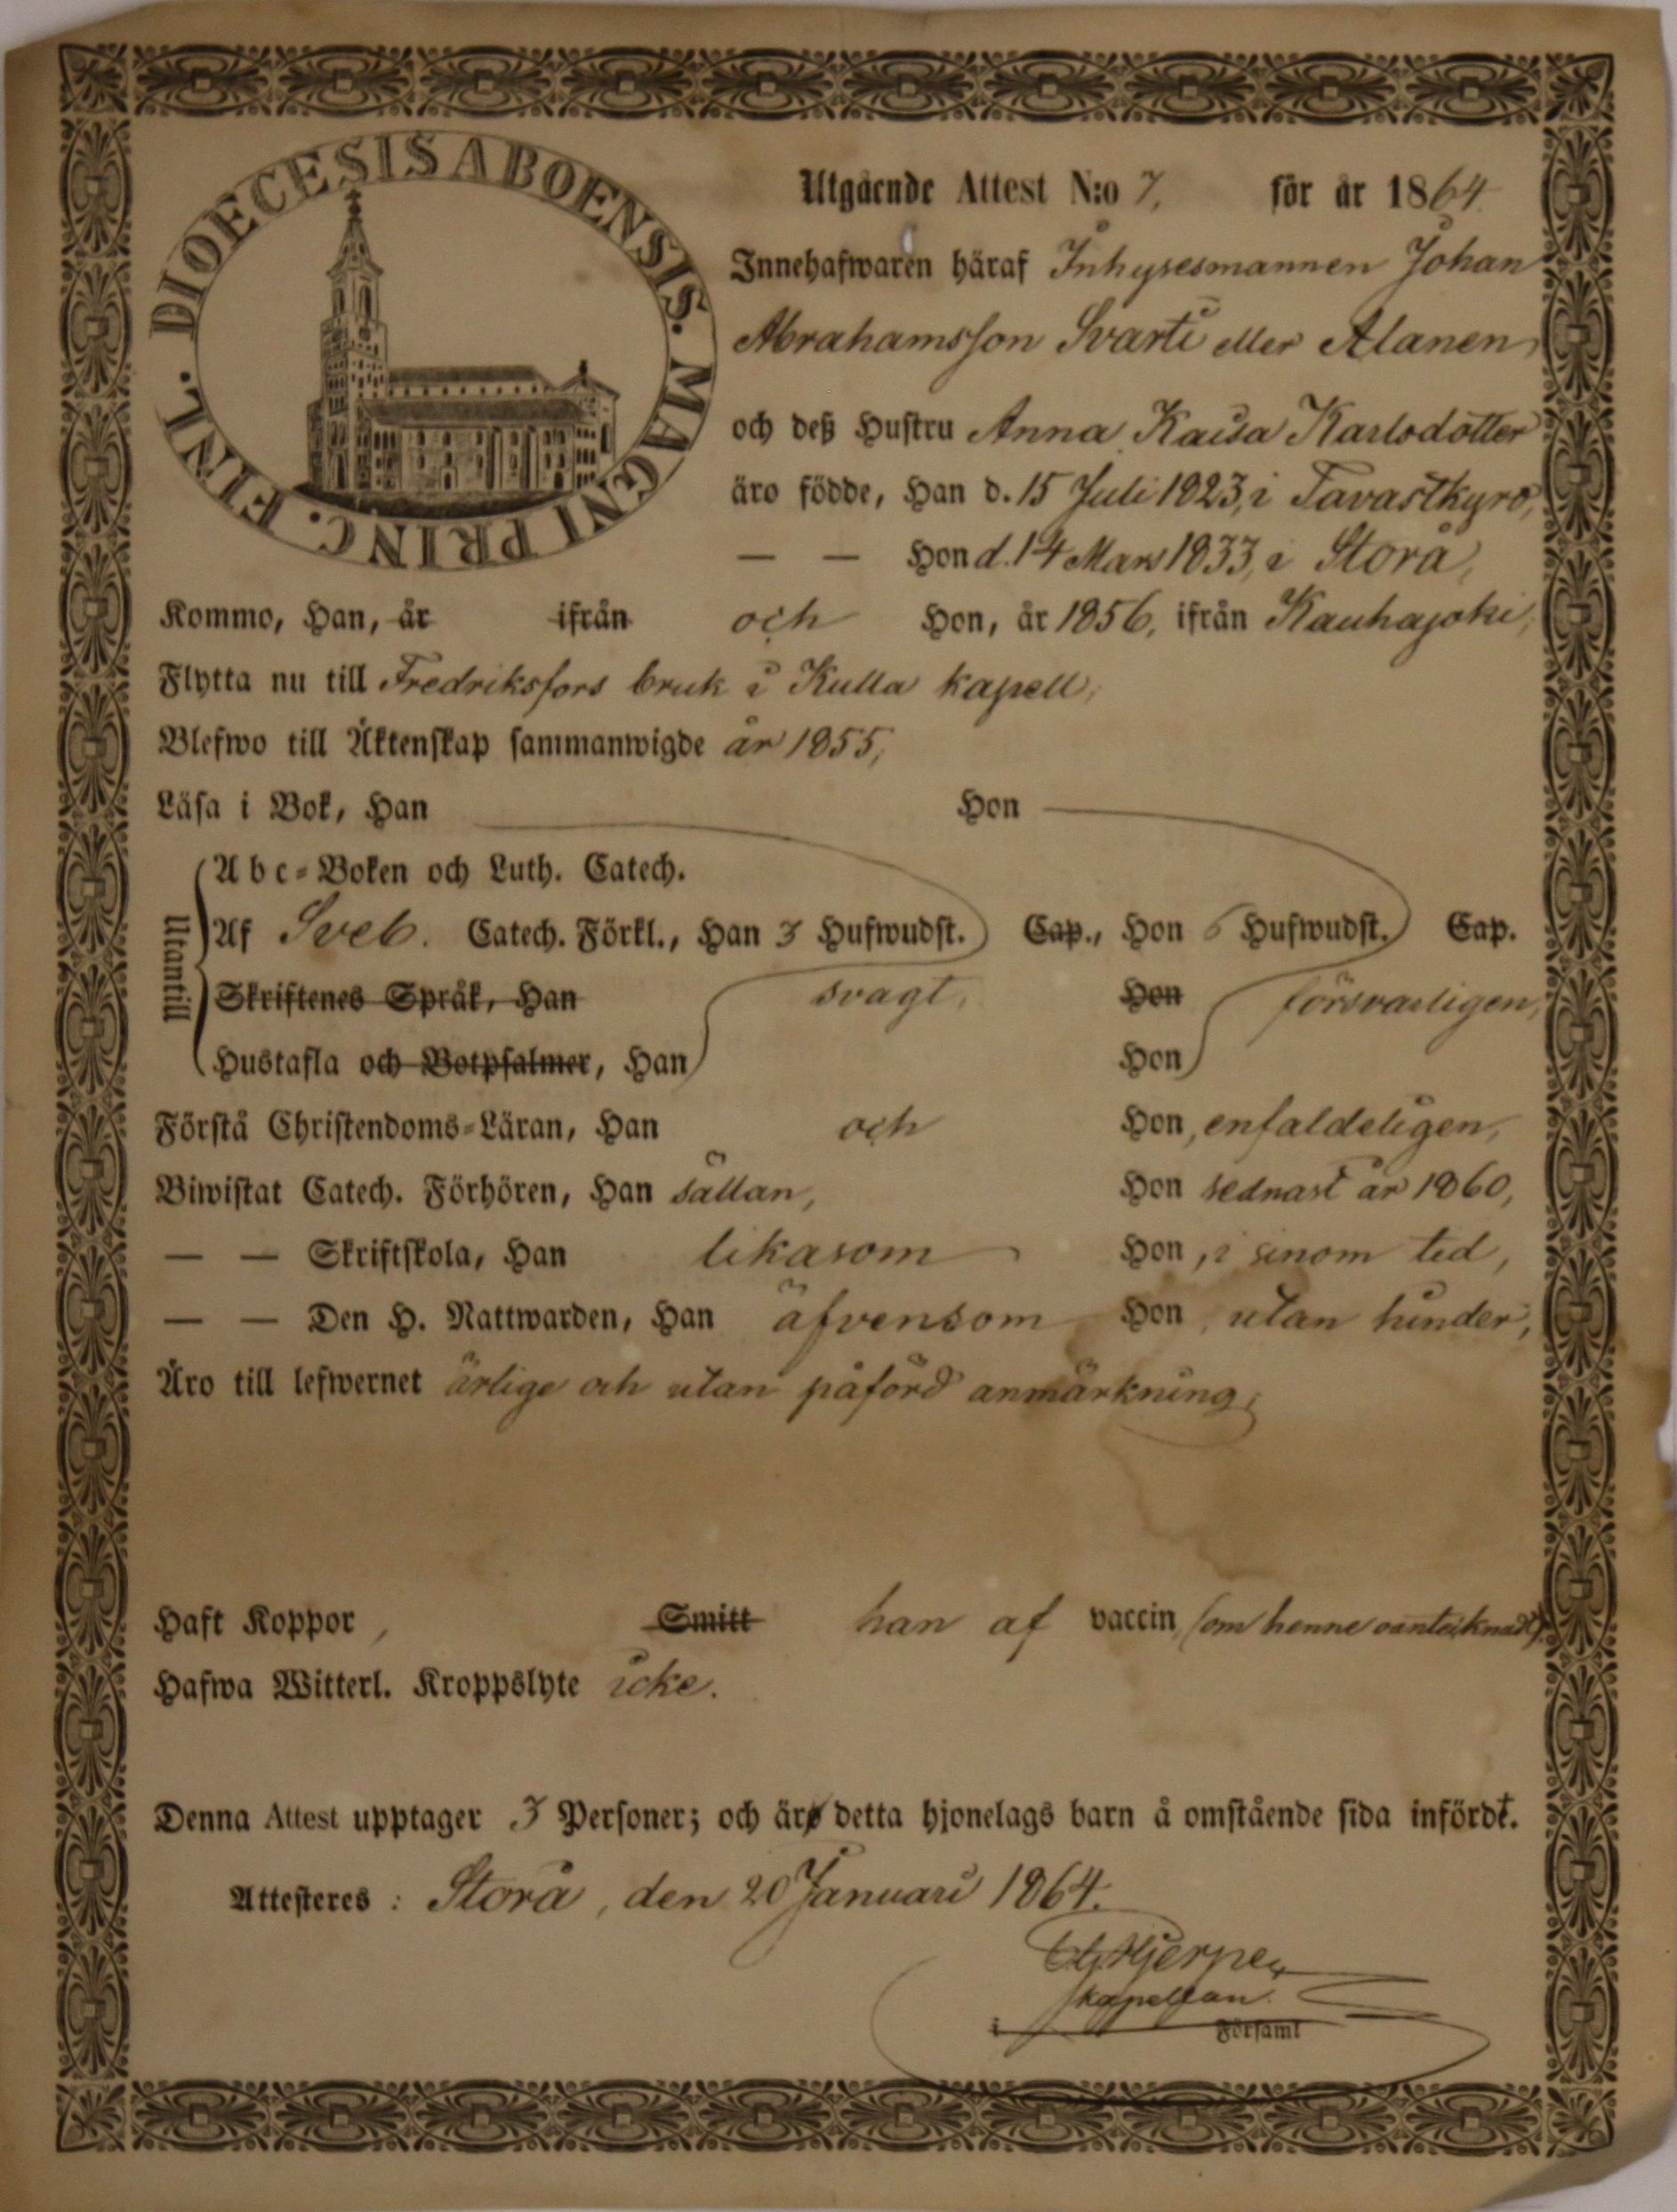 DIOECESIS ABOENSIS. MAGNI PRINC. FINL.
Utgående Attest N:o 7, för år 1864.
Innehafwaren häraf Inhysesmannen Johan
Abrahamsson Svarti eller Alanen,
och deß Hustru Anna Kaisa Karlsdotter
äro födde, Han d. 15 Juli 1823, i Tavastkyro,
— — Hon d. 14 Mars 1833, i Storå,
Kommo, Han, år ifrån och Hon, år 1856, ifrån Kauhajoki,
Flytta nu till Fredriksfors bruk i Kulla kapell,
Blefwo till Äktenskap sammanwigde år 1855,
Läsa i Bok, Han Hon
Abc-Boken och Luth. Catech.
Utantill
Af Sveb. Catech. Förkl., Han 3 Hufwudst. Cap., Hon 6 Hufwudst. Cap.
Skriftenes Språk, Han svagt, Hon försvarligen,
Hustafla och Botpsalmer, Han Hon
Förstå Christendoms-Läran, Han och Hon, enfaldeligen,
Biwistat Catech. Förhören, Han sällan, Hon sednast år 1860,
— — Skriftskola, Han likasom Hon, i sinom tid,
— — Den H. Nattwarden, Han äfvensom Hon, utan hinder,
Äro till lefwernet ärlige och utan påförd anmärkning,
Haft Koppor, Smitt han af vaccin, (om henne oanteiknadt).
Hafwa Witterl. Kroppslyte icke.
Denna Attest upptager 3 Personer; och äro detta hjonelags barn å omstående sida infördt.
Attesteres: Storå, den 20 Januari 1864.
Hjerpe
kapellan.
i Församl